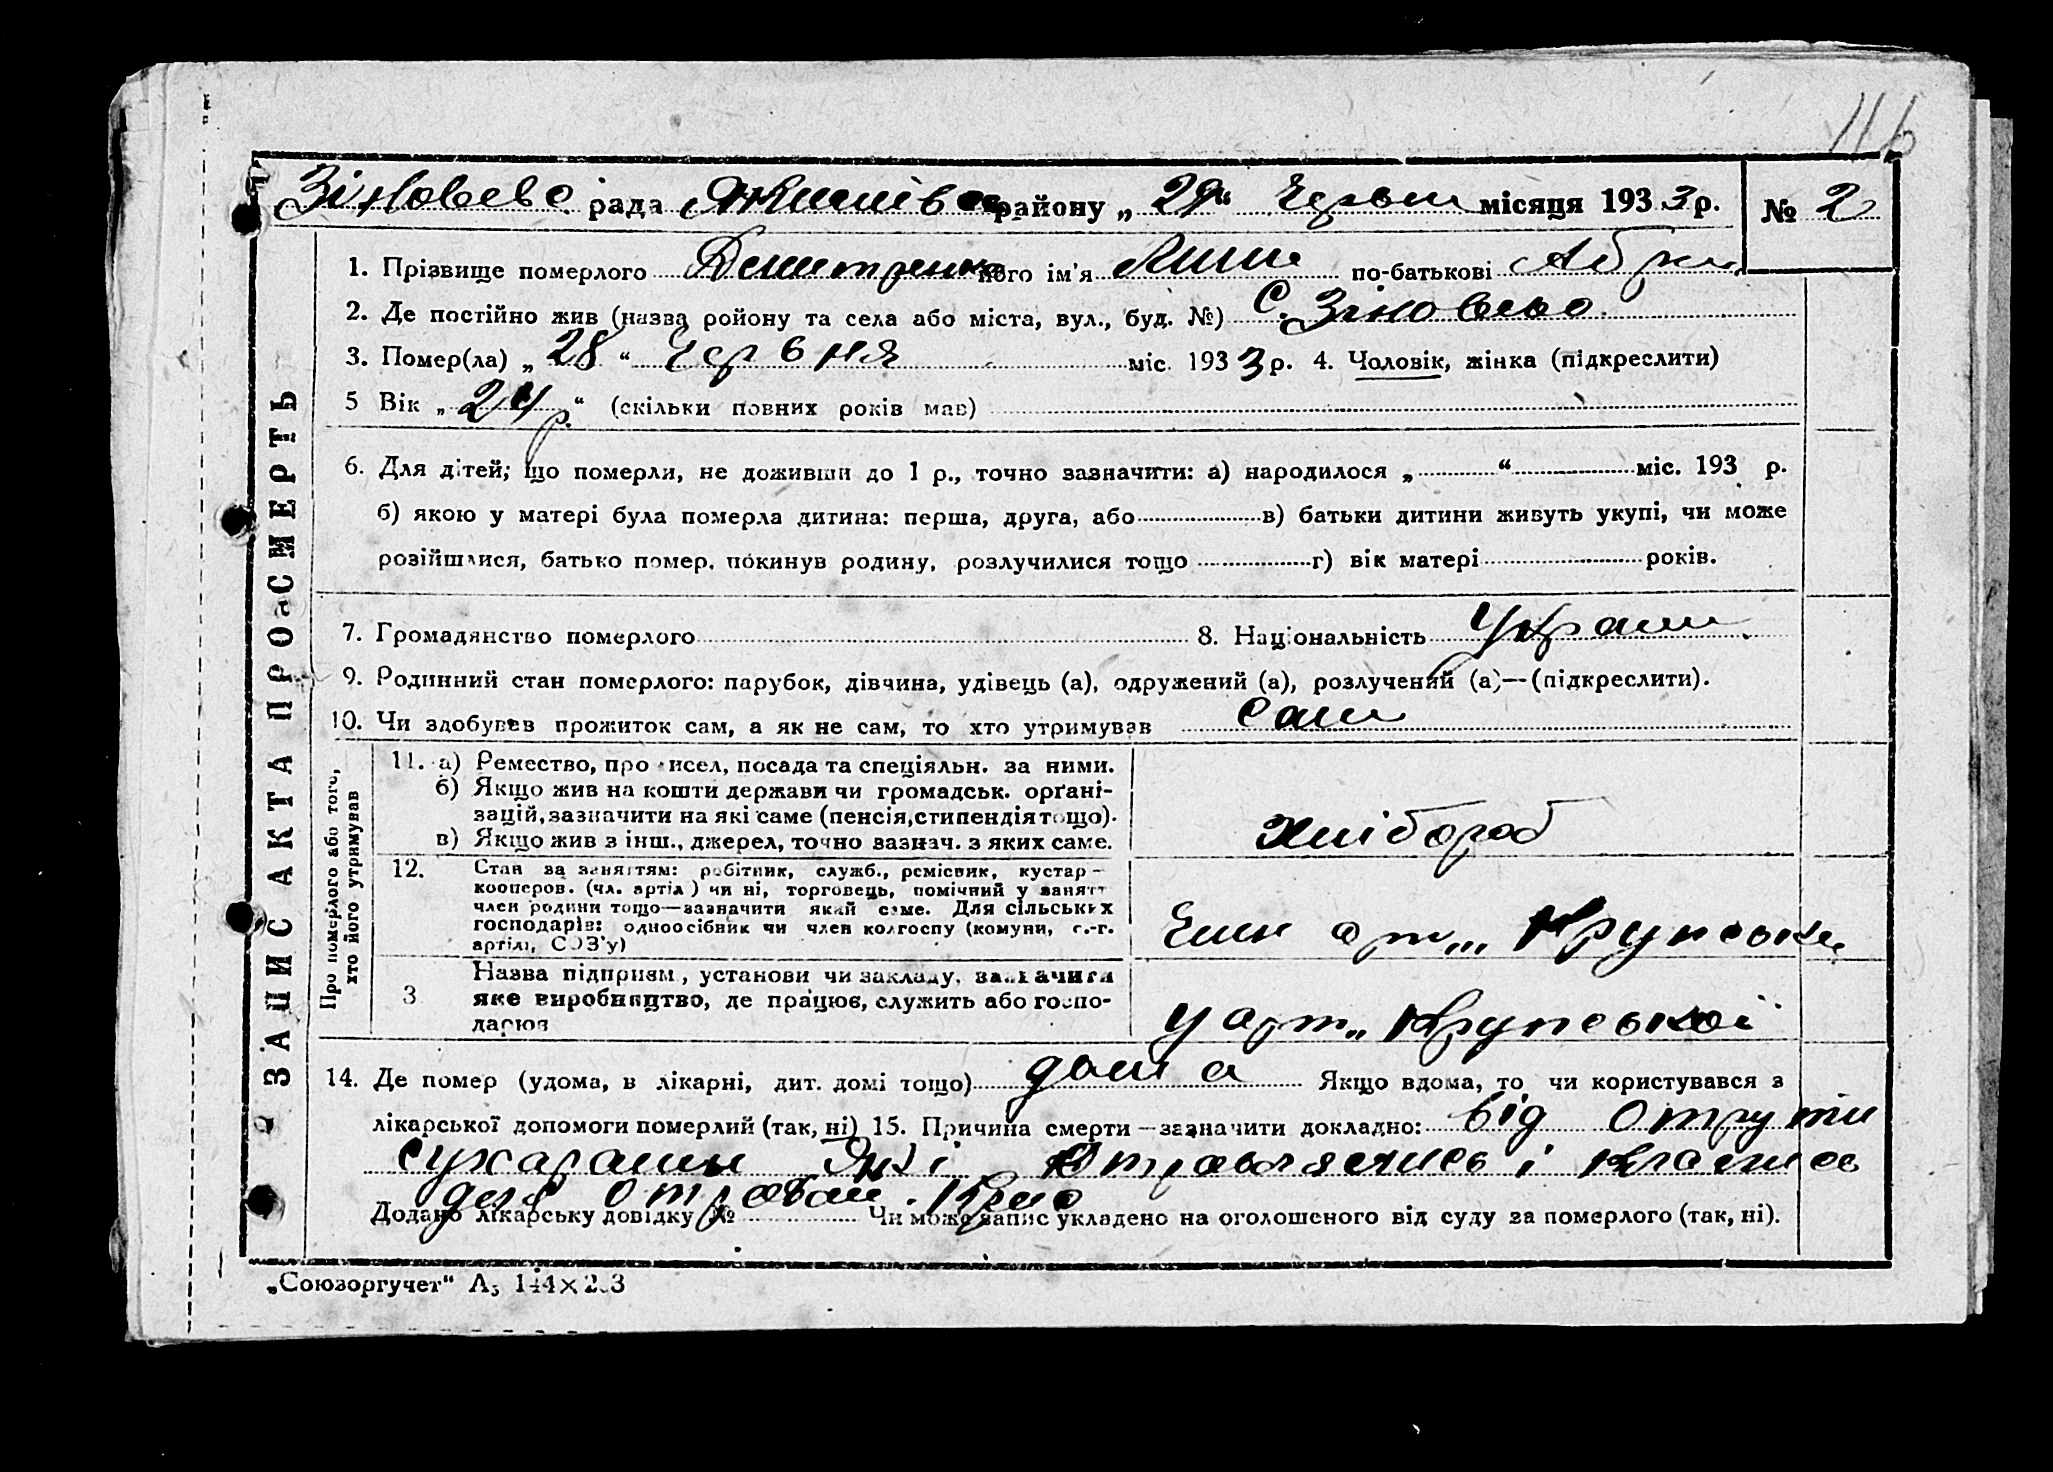 116
Зіновєво рада району „ 29 “ Червня місяця 1933 р. № 2
1. Прізвище померлого Дмитренко його ім'я по-батькові
2. Де постійно жив (назва ройону та села або міста, вул., буд. №) С. Зіновєво
3. Помер(ла) „ 28 “ Червня міс. 1933 р. 4. Чоловік, жінка (підкреслити)
5 Вік „ 24 р. “ (скільки повних років мав)
6. Для дітей, що померли, не доживши до 1 р., точно зазначити: а) народилося „ “ міс. 193 р.
б) якою у матері була померла дитина: перша, друга, або в) батьки дитини живуть укупі, чи може
розійшлися, батько помер, покинув родину, розлучилися тощо г) вік матері років.
7. Громадянство померлого 8. Національність Украин
9. Родинний стан померлого: парубок, дівчина, удівець (а), одружений (а), розлучений (а)—(підкреслити).
10. Чи здобував прожиток сам, а як не сам, то хто утримував сам
ЗАПИС АКТА ПРО СМЕРТЬ
Про померлого або того, хто його утримував
11. а) Ремество, промисел, посада та спеціяльн. за ними.
б) Якщо жив на кошти держави чи громадськ. орґані-
зацій, зазначити на які саме (пенсія, стипендія тощо).
в) Якщо жив з інш., джерел, точно вазнач. з яких саме.
хлібороб
12. Стан за заняттям: робітник, служб., ремісник, кустар-
кооперов. (чл. артіл) чи ні, торговець, помічний у занятт
член родини тощо—зазначити який саме. Для сільських
господарів: одноосібник чи член колгоспу (комуни, с.-г.
артілі, СОЗ'у)
Член арт „ Крупської
3 Назва підприєм, установи чи закладу, зазначити
яке виробництво, де працює, служить або госпо-
дарює
у арт „ Крупської
14. Де помер (удома, в лікарні, дит. домі тощо) дома Якщо вдома, то чи користувався з
лікарської допомоги померлий (так, ні) 15. Причина смерти—зазначити докладно: від отрути
сухарами які отравлялись і клались
для отрови
Додано лікарську довідку № Чи може запис укладено на оголошеного від суду за померлого (так, ні).
„Союзоргучет“ А5 144×203